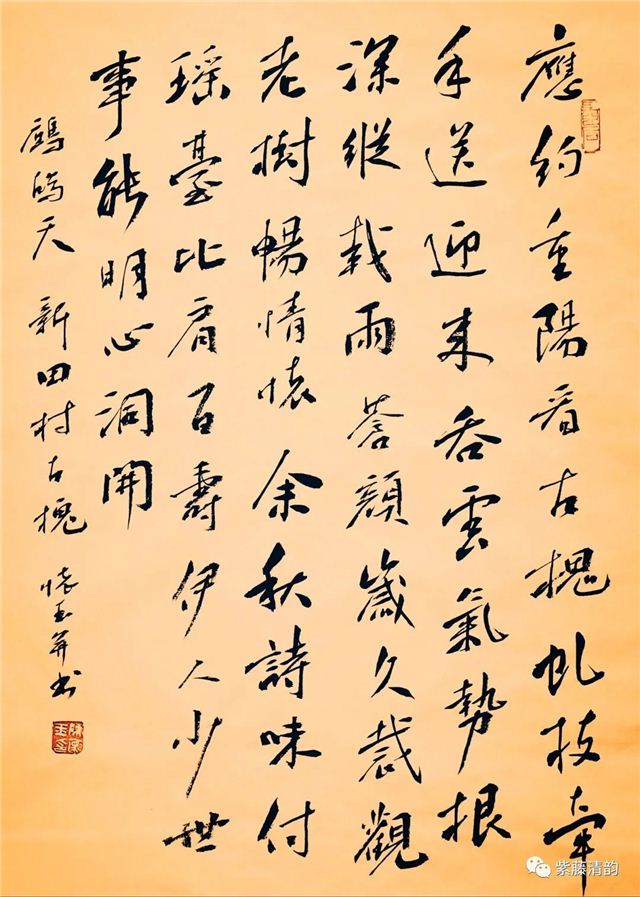 應約重陽看古槐虬枝牽
手送迎来吞雲氣勢根
深縱栽雨蒼顏歲久裁觀
老樹暢情懷余秋詩味付
瑤臺比肩百壽伊人少世
事能明心洞開
鷓鴣天 新田村古槐 懷玉并書
紫藤清韵